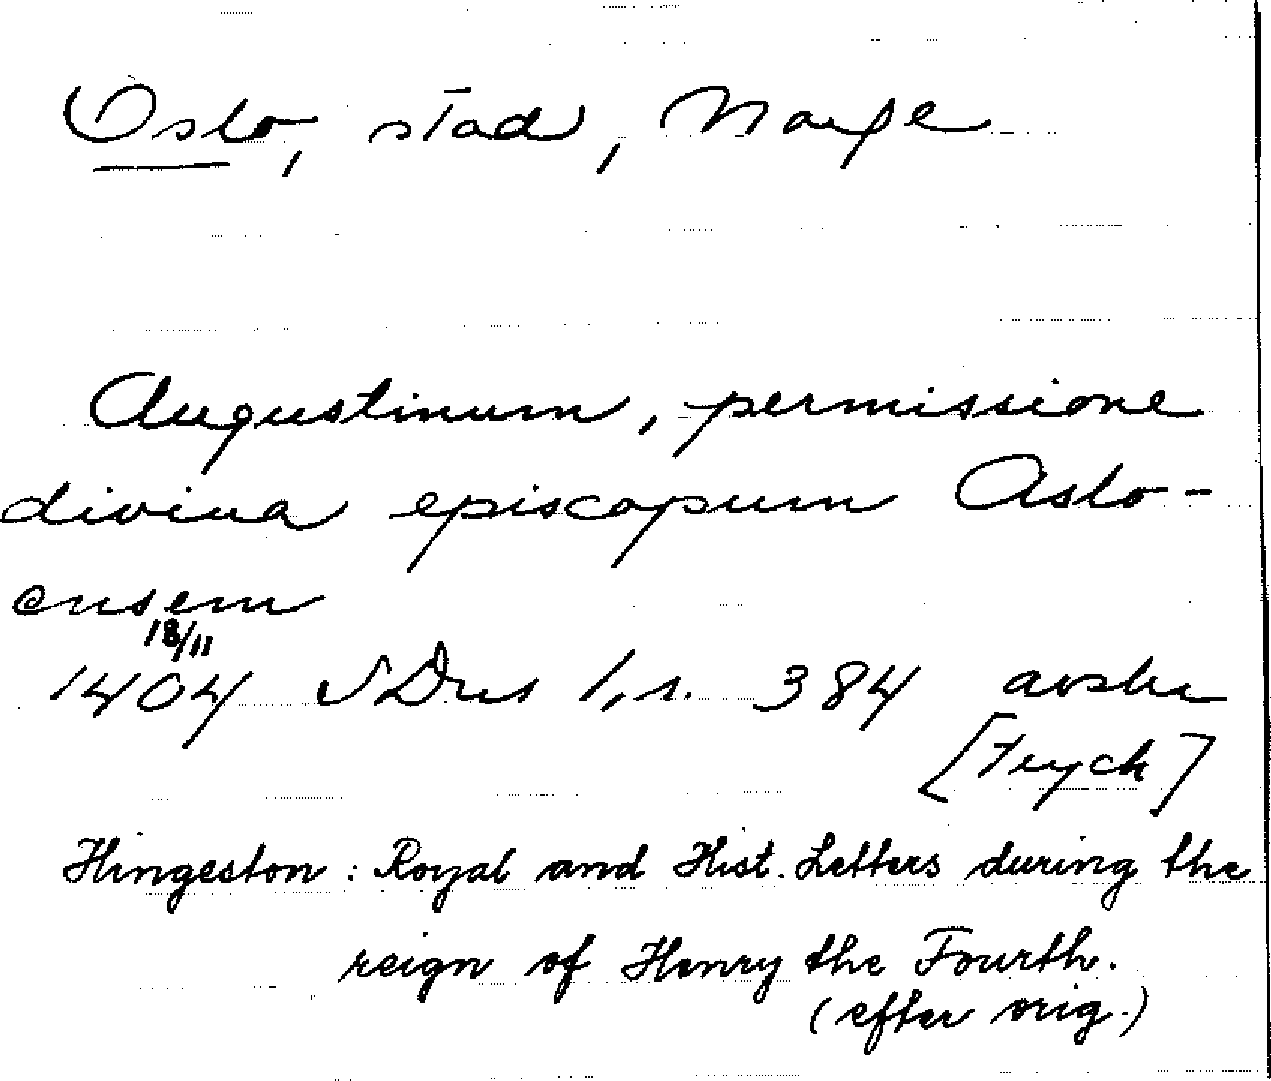 Oslo, stad, Norge
Augustinum, permissione
divina episcopum Aslo-
ensem
18/11
1404 SDns 1, s. 384 avskr
[tryck]
Hingeston: Royal and Hist. Letters during the
reign of Henry the Fourth.
(efter orig.)